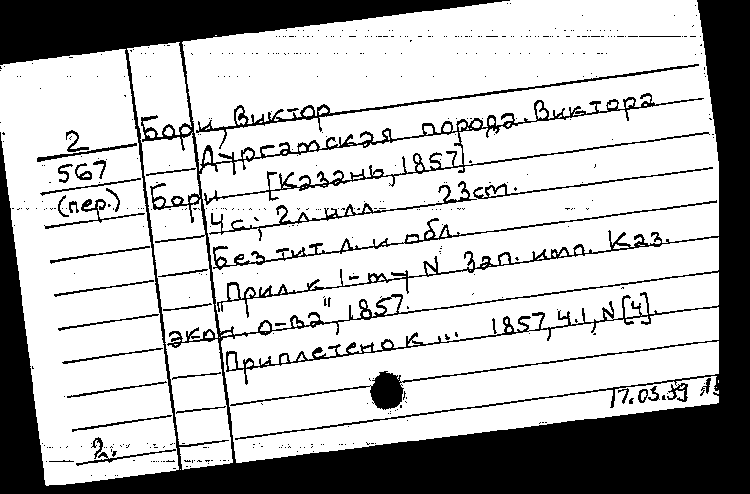 2
567
(пер.)
Бори, Виктор
Дургамская порода. Виктора
Бори. [Казань, 1857].
4 с.; 2 л. илл. 23cm.
Без тит. л. и обл.
"Прил. к 1-му N Зап. имп. Каз.
экон. о-ва", 1857.
Приплетено к ... 1857, ч.1, N [4].
17.03.89
2.